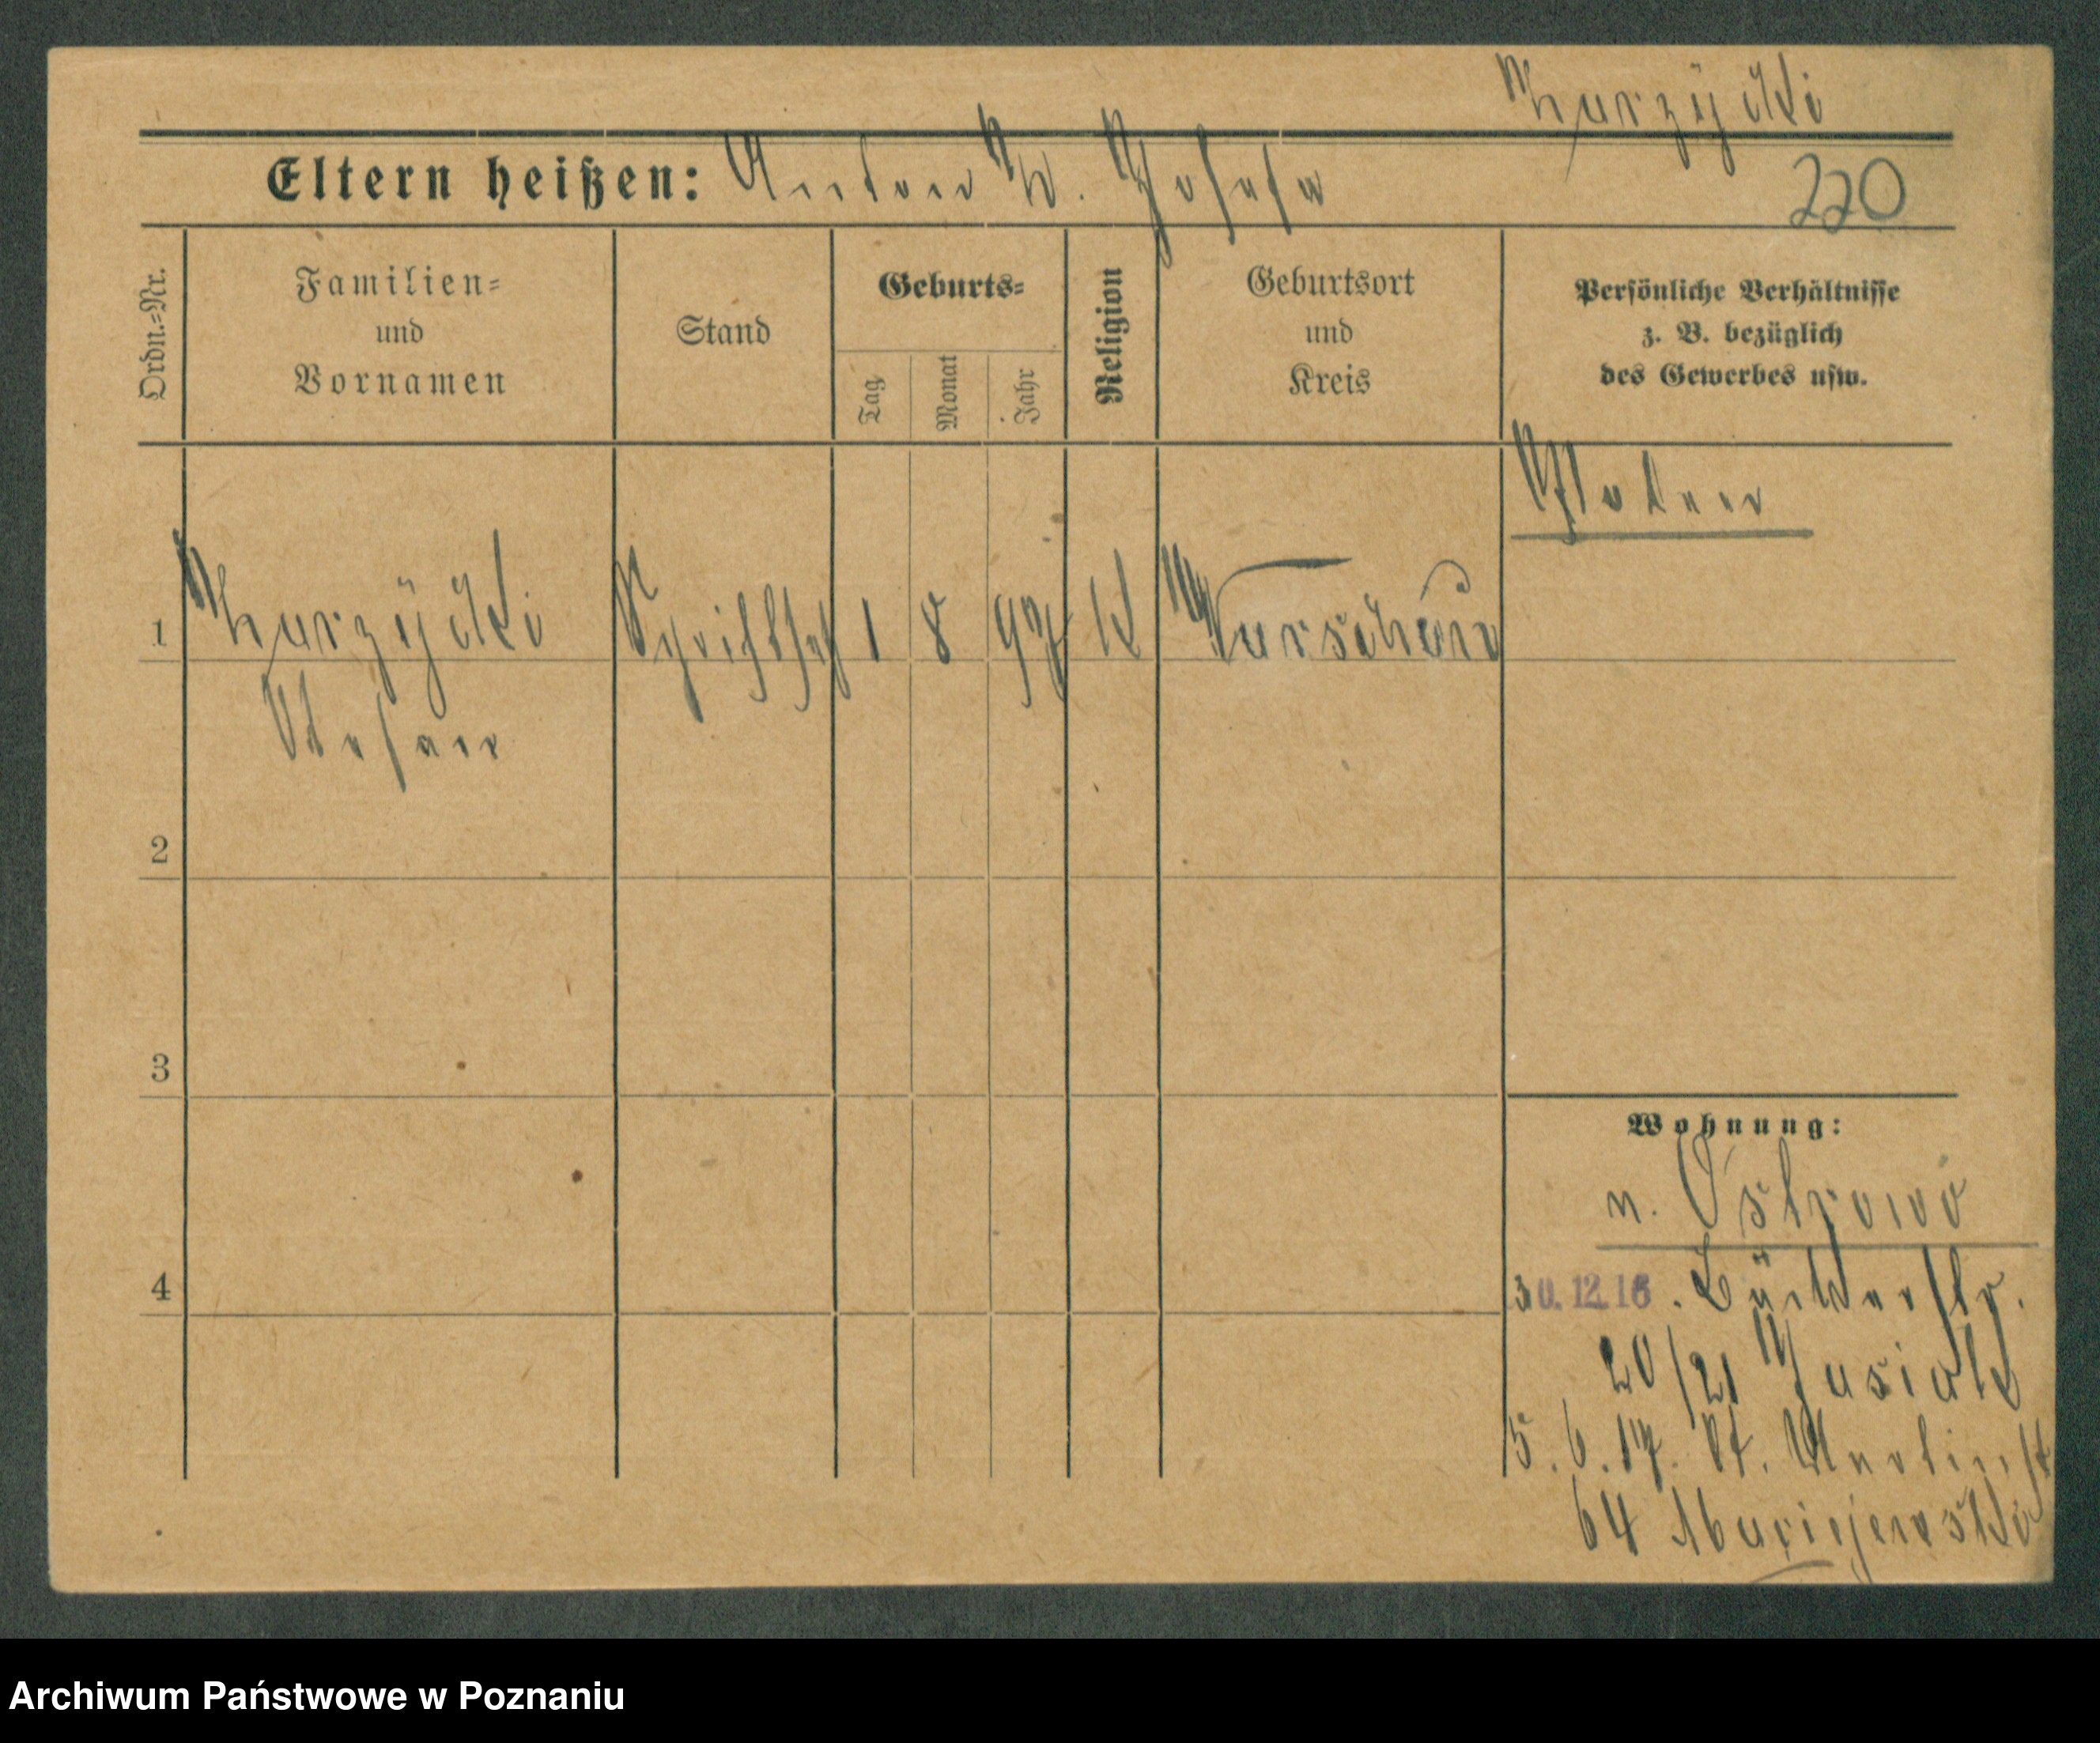 Kurzÿcki
Eltern heißen: Anton K. Josefa
220
Ordn.=Nr.
Familien=
und
Vornamen
Stand
Geburts=
Tag
Monat
Jahr
Religion
Geburtsort
und
Kreis
Persönliche Verhältnisse
z. B. bezüglich
des Gewerbes usw.
Polen
1 Kurzÿcki 1 8 97 k Warschau
Stefan
2
3
4
Wohnung:
n. Ostrowo
30.12.16. Bäckerstr.
20/21 Jasiak
5.6.17. St. Martinst
64 Maciejewski
Archiwum Państwowe w Poznaniu